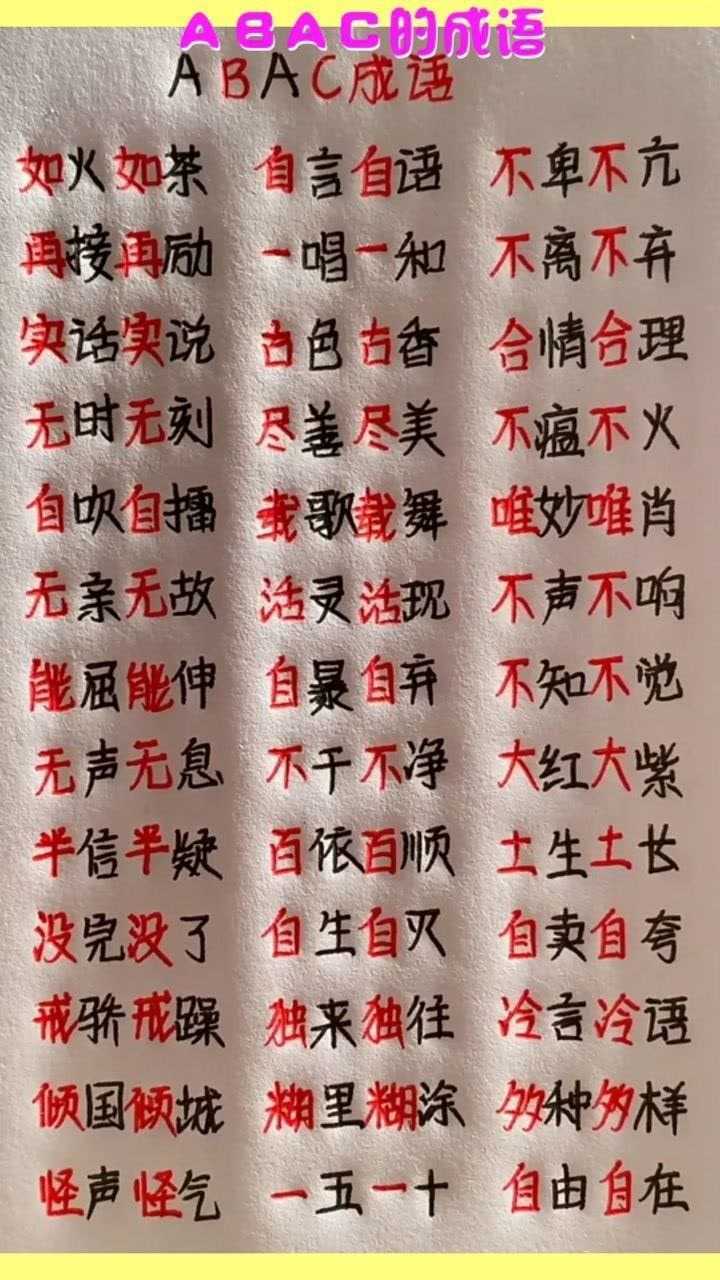 ABAC的成语
ABAC成语
如火如荼 自言自语 不卑不亢
再接再励 一唱一和 不离不弃
实话实说 古色古香 合情合理
无时无刻 尽善尽美 不瘟不火
自吹自擂 载歌载舞 唯妙唯肖
无亲无故 活灵活现 不声不响
能屈能伸 自暴自弃 不知不觉
无声无息 不干不净 大红大紫
半信半疑 百依百顺 土生土长
没完没了 自生自灭 自卖自夸
戒骄戒躁 独来独往 冷言冷语
倾国倾城 糊里糊涂 多种多样
怪声怪气 一五一十 自由自在